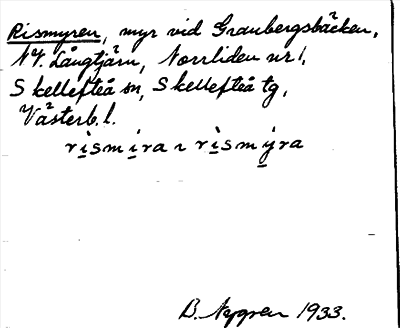 Rismyren, myr vid Granbergsbäcken,
NV. Långtjärn, Norrliden nr 1,
Skellefteå sn, Skellefteå tg,
Västerb. l.
rismira ~ rismyra
B. Nygren 1933.